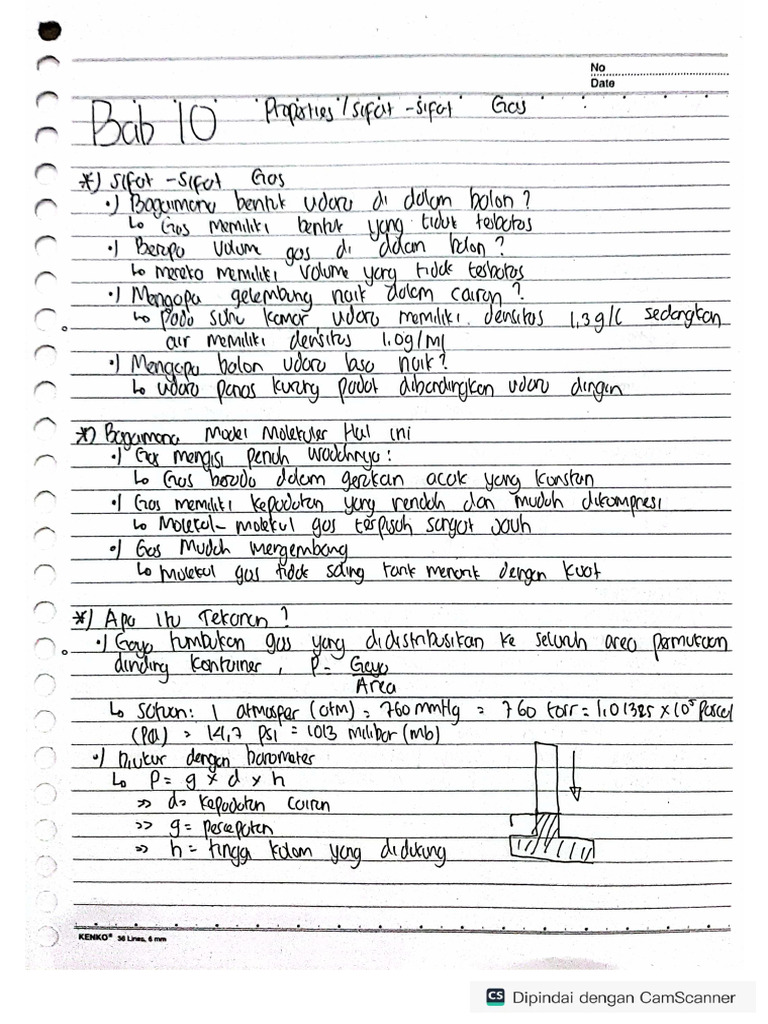 No
Date
Bab 10 Properties / Sifat-sifat Gas
*) Sifat-sifat Gas
•) Bagaimana bentuk udara di dalam balon?
↳ Gas memiliki bentuk yang tidak terbatas
•) Berapa volume gas di dalam balon?
↳ mereka memiliki volume yang tidak terbatas
•) Mengapa gelembung naik dalam cairan?
↳ Pada suhu kamar udara memiliki densitas 1,3 g/L sedangkan
air memiliki densitas 1.0g/ml
•) Mengapa balon udara bisa naik?
↳ udara panas kurang padat dibandingkan udara dingin
*) Bagaimana Model Molekuler Hal ini
•) Gas mengisi penuh wadahnya:
↳ Gas berada dalam gerakan acak yang konstan
•) Gas memiliki kepadatan yang rendah dan mudah dikompresi
↳ Molekul-molekul gas terpisah sangat jauh
•) Gas Mudah mengembang
↳ molekul gas tidak saling tarik menarik dengan kuat
*) Apa itu Tekanan?
•) Gaya tumbukan gas yang didistribusikan ke seluruh area permukaan
dinding kontainer, P = Gaya
Area
↳ satuan: 1 atmosper (atm) = 760 mmHg = 760 torr = 1,01325 × 10⁵ Pascal
(Pa) = 14,7 psi = 1013 milibar (mb)
•) Diukur dengan barometer
↳ P = g × d × h
>> d = kepadatan cairan
>> g = percepatan
>> h = tingga kolom yang didukung
KENKO® 36 Lines, 6 mm
CS Dipindai dengan CamScanner